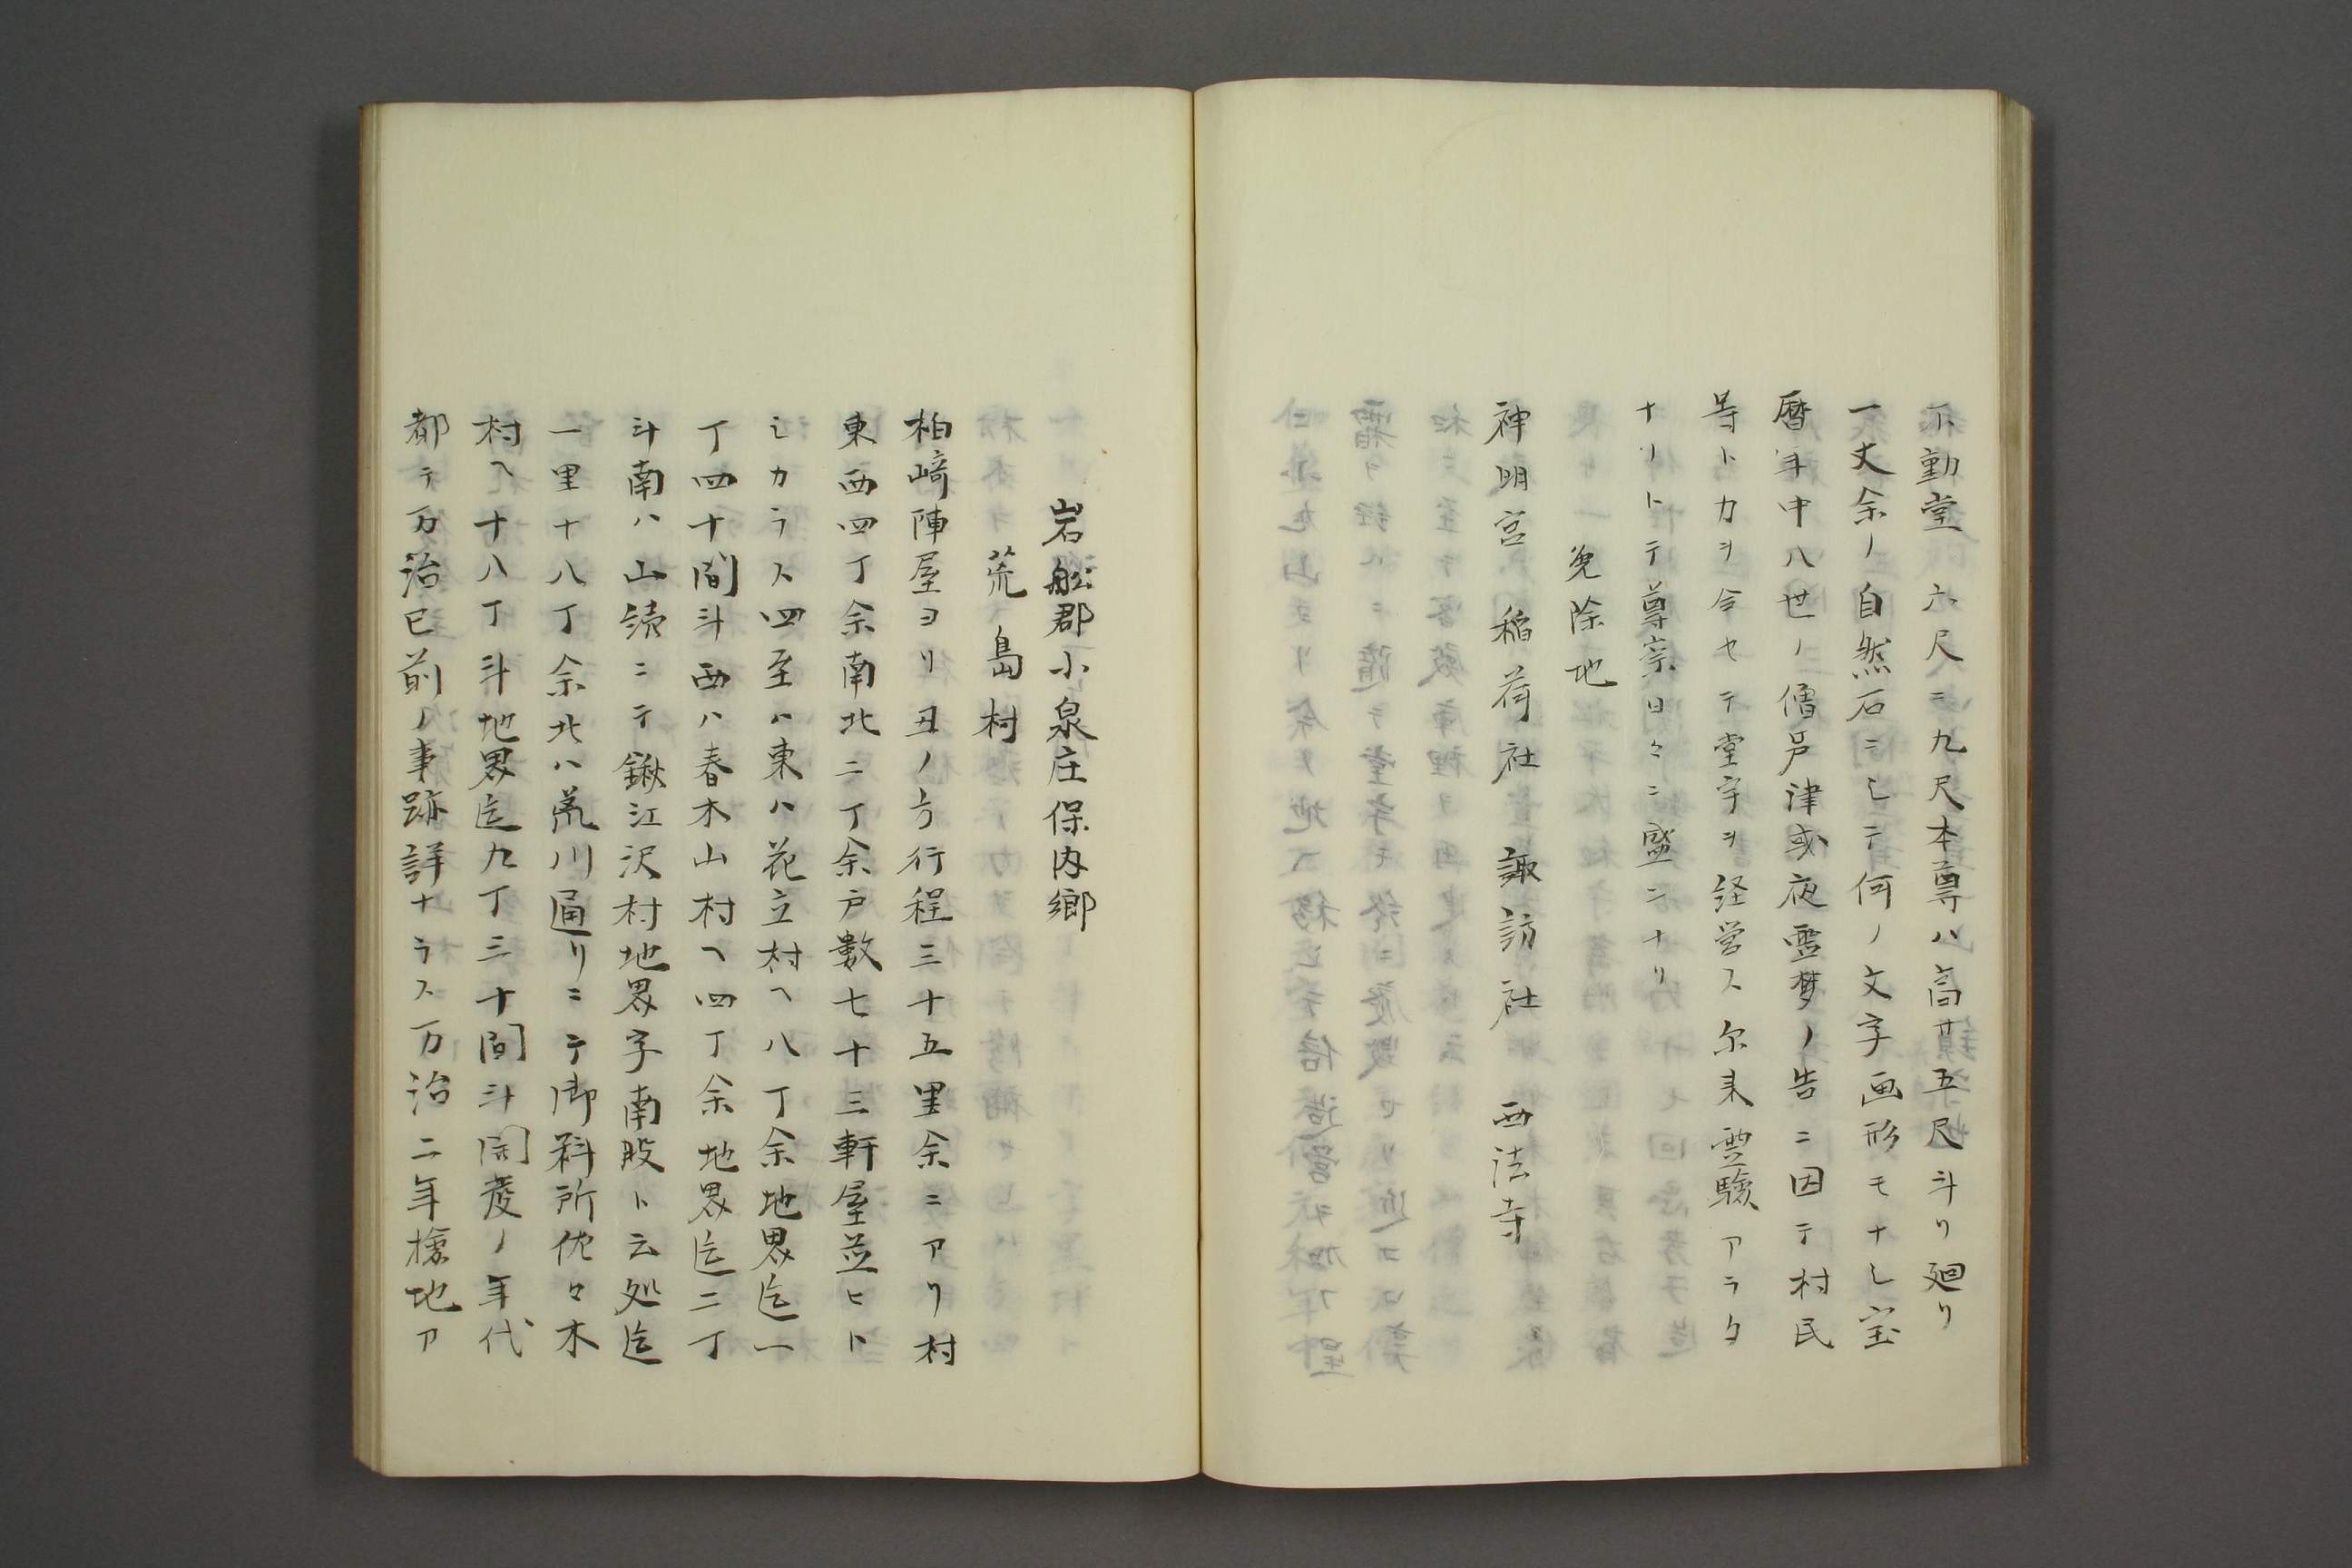 不動堂 六尺ニ九尺本尊ハ高サ五尺斗リ廻リ
一丈余ノ自然石ニシテ何ノ文字画形モナシ宝
暦年中八世ノ僧芦津或夜霊夢ノ告ニ因テ村民
等ト力ヲ令セテ堂宇ヲ経営ス尓来霊験アラタ
ナリトテ尊崇日々ニ盛ンナリ
免除地
神明宮 稲荷社 諏訪社 西法寺
岩舩郡小泉庄保内郷
荒島村
柏﨑陣屋ヨリ丑ノ方行程三十五里余ニアリ村
東西四丁余南北二丁余戸數七十三軒屋並ヒト
シカラス四至ハ東ハ花立村ヘ八丁余地界迄一
丁四十間斗西ハ春木山村ヘ四丁余地界迄二丁
斗南ハ山続ニテ鍬江沢村地界字南股ト云処迄
一里十八丁余北ハ荒川通リニテ御料所佐々木
村ヘ十八丁斗地界迄九丁三十間斗開発ノ年代
都テ万治已前ノ事跡詳ナラス万治二年撿地ア